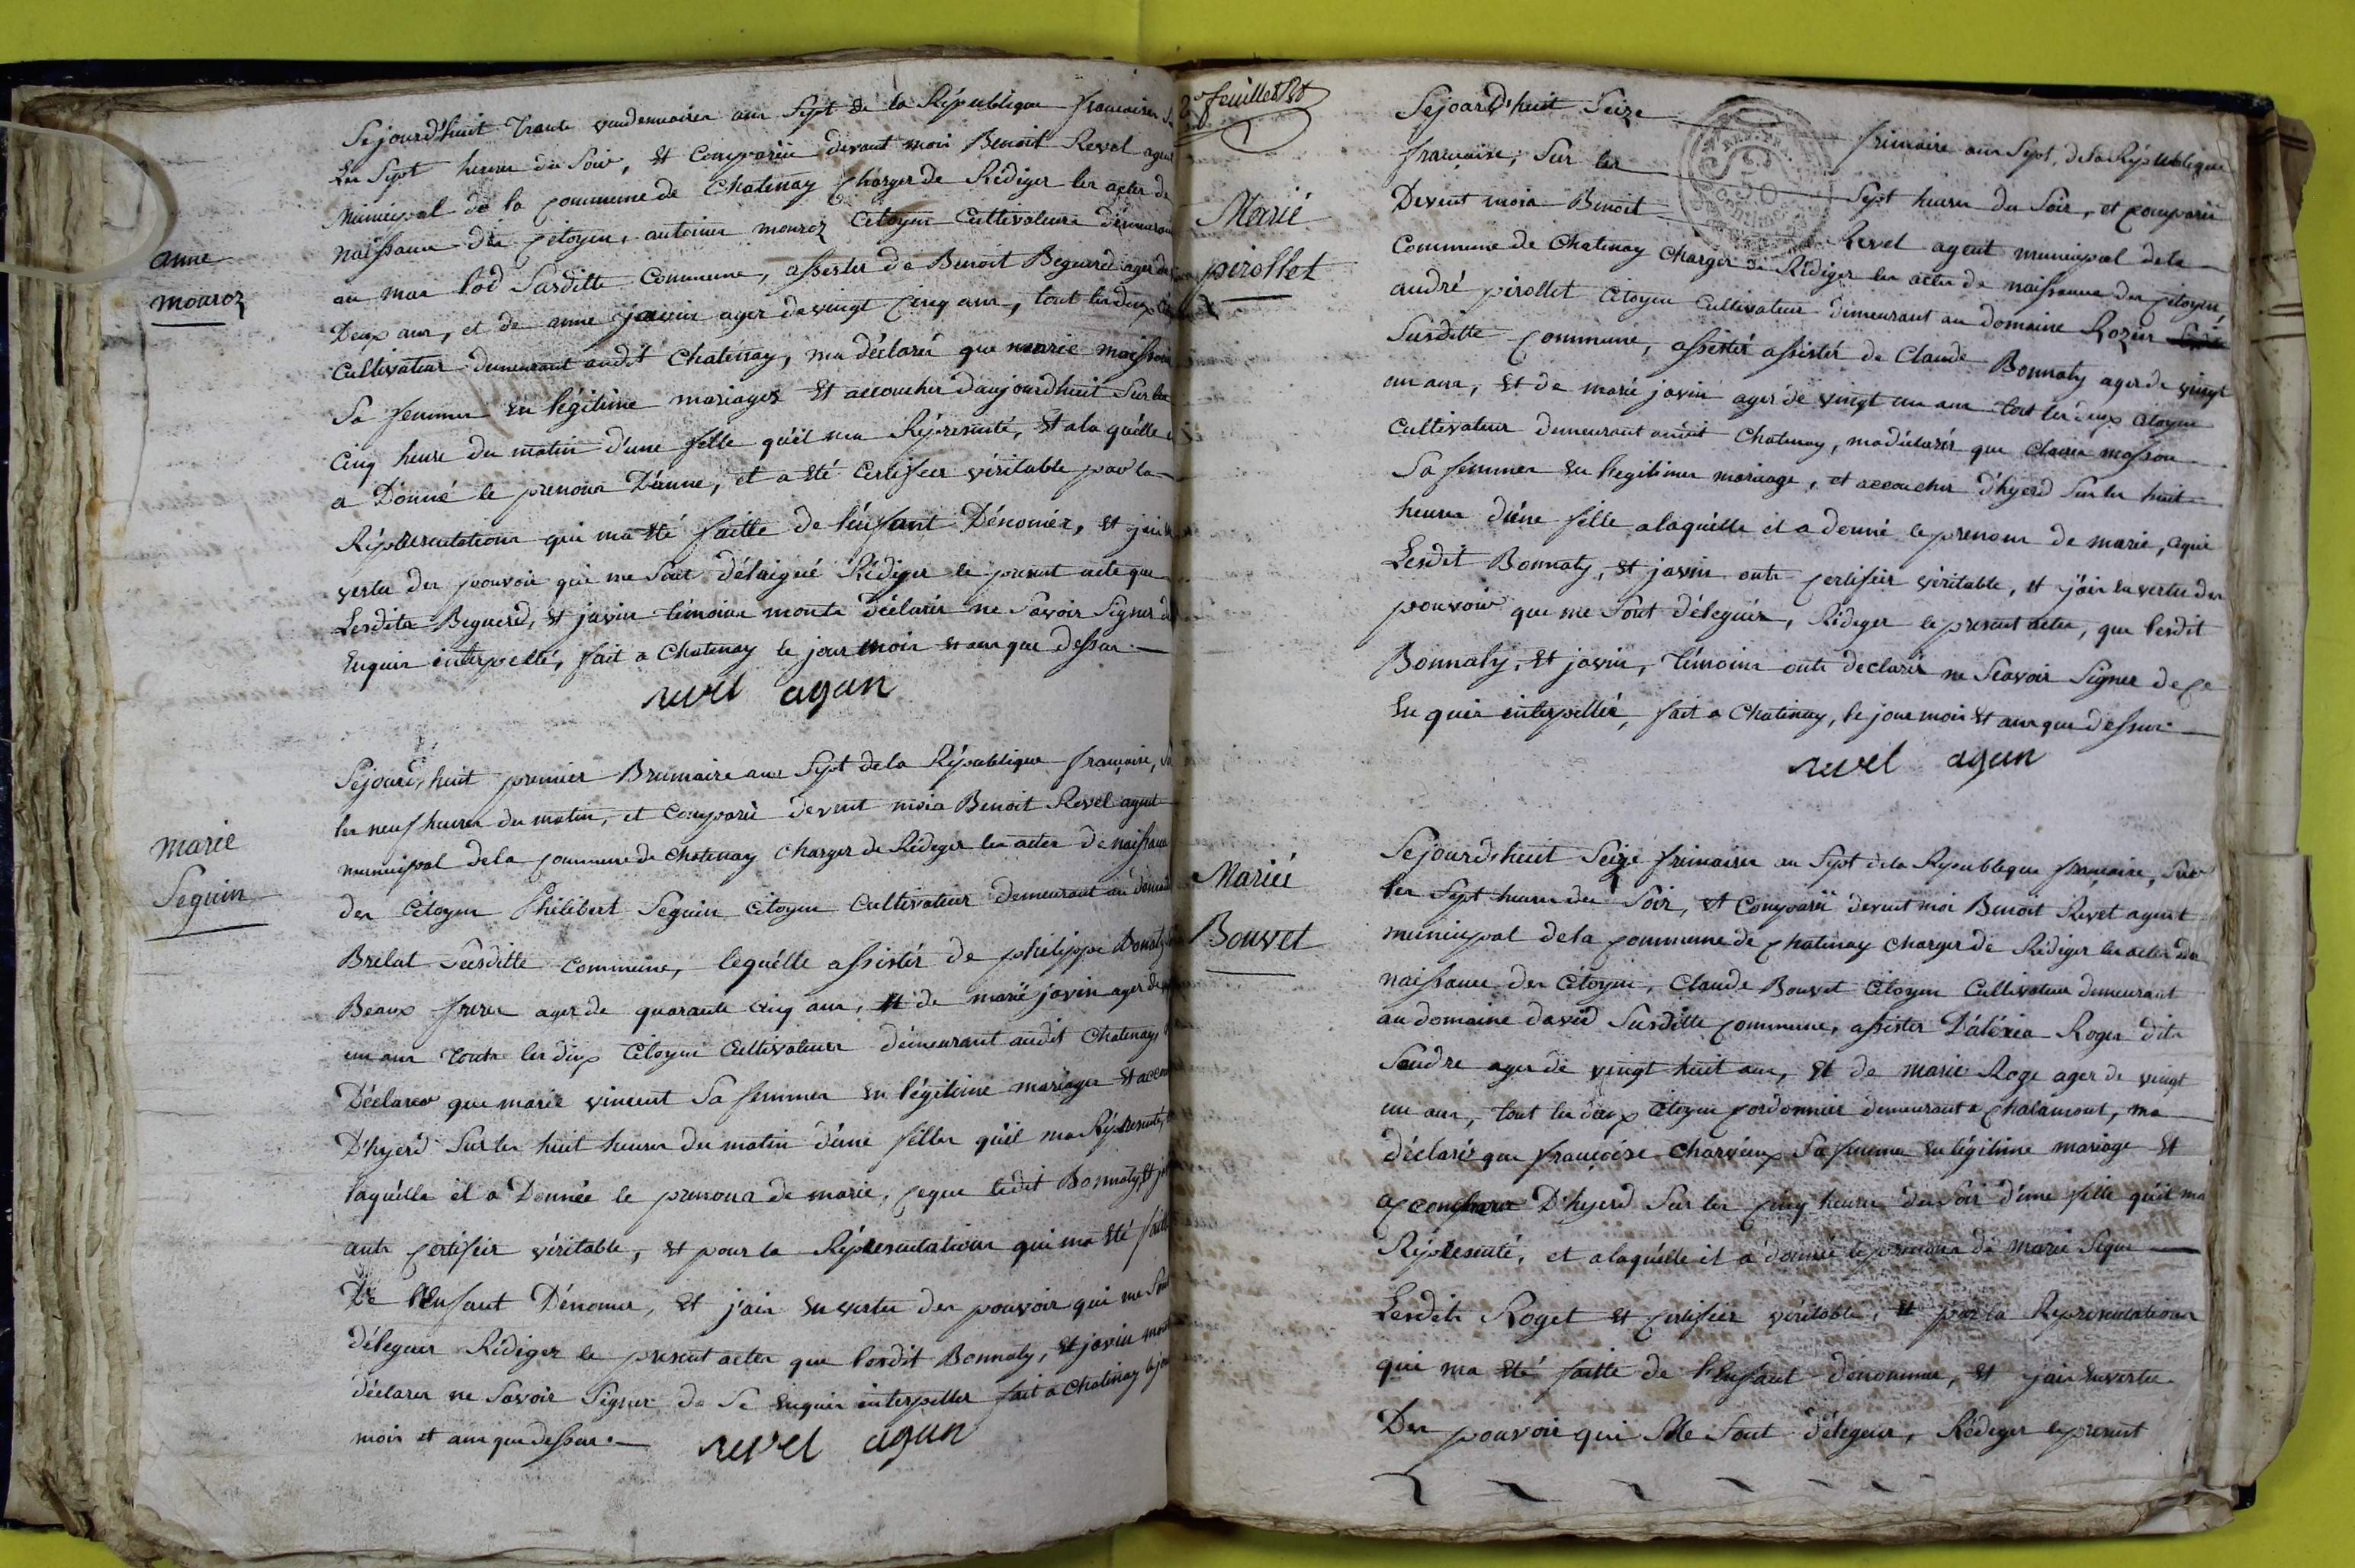 anne
mouroz
Sejourd'huit Trante vandemaires ans Sept de la République francaises
Les Sept heures du Soir, Et Comparüe devant mois Benoit Revel agent
Municipal de la Commune de Chatenay Charger de Rédiger les actes de
naissance des Citoyens, antoines mouroz Citoyen Cultivateurs demeurant
au mas Susditte Commune, assister de Benoit Beguerd ager de
Deux ans, et de anne javin ager de vingt Cinq ans, tout les deux
Cultivateur demeurant audit Chatenay, ma déclaré que marie
Sa femmes en légitime mariages Et accoucher daujourdhuit Sur les
Cinq heure du matin d'une fille qu'il ma Réprésenté, Et a la quélle
a Donné le prenoms D'anne, et a été Certifier véritable par la
Réprésentations qui ma été faitte de l'énfant Dénomés, Et j'ais
vertu des pouvoir qui me Sont délaigué Rédiger le présent acte que
Lesdits Beguerd, Et javin témoins monts déclarés ne Savoir Signer de
Enquis interpellé, fait a Chatenay le jour mois et ans que dessus.
revel agan
marie
Seguin
Sejourd'huit premier Brumaire ans Sept de la République française,
les neuf heures du matin, et Comparü devent mois Benoit Revel agent
municipal de la Commune de Chatenay Charger de Rédiger les actes de naissance
des Citoyens Philibert Seguin Citoyen Cultivateur demeurant au
Brelat Susditte Commune, lequélle assistés de philippe Bonnaty
Beaux freres ager de quarante Cinq ans, et de marie javin ager de
un ans touts les deux Citoyen Cultivateurs demeurant audit Chatenay,
Déclares que marie vincent Sa femmes en légitime mariages Et
D'hyerd Sur les huit heures du matin d'une filles qu'il ma Réprésenté,
laquélle il a Donnée le prenoms de marie, Ce que ledit Bonnaty, Et
onts Certifier véritable, Et pour la Réprésentations qui ma été faitte
De l'Enfant Dénomer, Et j'ais En vertu des pouvoir qui me Sont
déleguer Rédiger le présent actes que lesdit Bonnaty, Et javin monts
déclares ne Savoir Signer de Se Enquis interpeller fait a Chatenay le jour
mois et ans que dessus. revel agan
2e feuillet
Marie
pirollet
Sejourd'huit Seize frimaire ans Sept, de la République
francaise, Sur les Sept heures du Soir, et Comparü
Devent mois Benoit Revel agent municipal de la
Commune de Chatenay Charger de Rédiger les actes de naissance des Citoyens,
andré pirollet Citoyen Cultivateur demeurant au domaine Rozier
Susditte Commune, assistér assistér de Claude Bonnaty ager de vingt
un ans, Et de marie javin ager de vingt un ans tout les deux Citoyen
Cultivateur demeurant audit Chatenay, ma déclarés que Claira masson
Sa femmes en legitimes mariage, et accoucher d'hyerd Sur les huit
heures d'une fille a laquélle il a donné le prenom de marie, Ce qui
Lesdit Bonnaty, Et javin onts Certifier véritable, Et j'ais en vertu des
pouvoir que me Sont délegués, Rédiger le présent actes, que lesdit
Bonnaty, Et javin, témoins onts declarés ne Scavoir Signer de Ce
En quis interpellée, fait a Chatenay, le jour mois Et ans que dessus
revel agan
Marié
Bouvet
Sejourd'huit Seize frimaires an Sept de la République francaise, Sur
les Sept heures du Soir, Et Comparüe devent moi Benoit Revet agent
municipal de la Commune de Chatenay Charger de Rédiger les actes de
naissance des Citoyens, Claude Bouvet Citoyen Cultivateur demeurant
au domaine david Susditte Commune, assister D'aléxis Roger dits
Soudre ager de vingt huit ans, Et de marie Roge ager de vingt
un ans, tout les deux Citoyen Cordonnier demeurant a Chalamont, ma
déclarés que françoise Charvieux Sa femme en légitime mariage Et
accoucher D'hyerd Sur les Cinq heures du Soir d'une fille qu'il ma
Réprésenté, et a laquélle il a donnée le prenoms de marie Ceque
Lesdits Roget Et Certifier véritable, Et par la Représentations
qui ma Eté faitte de l'Enfant dénommée, Et j'ais En vertu
Des pouvoir qui Me Sont délegués, Rédiger le présent